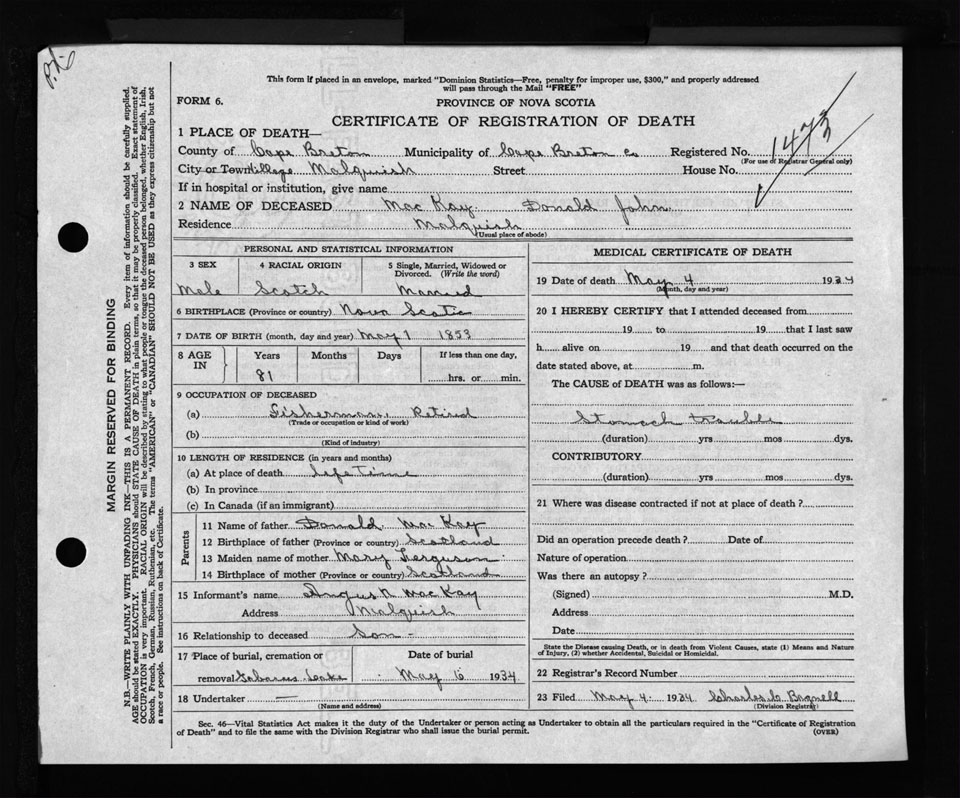 P.d.
This form if placed in an envelope, marked "Dominion Statistics—Free, penalty for improper use, $300," and properly addressed
will pass through the Mail "FREE"
FORM 6.
PROVINCE OF NOVA SCOTIA
CERTIFICATE OF REGISTRATION OF DEATH
1473
1 PLACE OF DEATH—
County of Cape Breton Municipality of Cape Breton Co Registered No.
(For use of Registrar General only)
City or Town Village Malquish Street House No.
If in hospital or institution, give name
2 NAME OF DECEASED Mac Kay. Donald John
Residence Malquish
(Usual place of abode)
PERSONAL AND STATISTICAL INFORMATION
3 SEX 4 RACIAL ORIGIN 5 Single, Married, Widowed or
Divorced. (Write the word)
Male Scotch Married
6 BIRTHPLACE (Province or country) Nova Scotia
7 DATE OF BIRTH (month, day and year) May 1 1853
8 AGE IN Years Months Days If less than one day,
81 hrs. or min.
9 OCCUPATION OF DECEASED
(a) Fisherman. Retired
(Trade or occupation or kind of work)
(b)
(Kind of industry)
10 LENGTH OF RESIDENCE (in years and months)
(a) At place of death life Time
(b) In province
(c) In Canada (if an immigrant)
Parents
11 Name of father Donald Mac Kay
12 Birthplace of father (Province or country) Scotland
13 Maiden name of mother Mary Ferguson
14 Birthplace of mother (Province or country) Scotland
15 Informant's name Angus N. Mac Kay
Address Malquish
16 Relationship to deceased Son -
17 Place of burial, cremation or Date of burial
removal Gabarus Lake May 6 1934
18 Undertaker —
(Name and address)
MEDICAL CERTIFICATE OF DEATH
19 Date of death May 4 1934
(Month, day and year)
20 I HEREBY CERTIFY that I attended deceased from
19 to 19 that I last saw
h alive on 19 and that death occurred on the
date stated above, at m.
The CAUSE of DEATH was as follows:—
Stomach trouble
(duration) yrs mos dys.
CONTRIBUTORY
(duration) yrs mos dys.
21 Where was disease contracted if not at place of death?
Did an operation precede death? Date of
Nature of operation
Was there an autopsy?
(Signed) M.D.
Address
Date
State the Disease causing Death, or in death from Violent Causes, state (1) Means and Nature
of Injury, (2) whether Accidental, Suicidal or Homicidal.
22 Registrar's Record Number
23 Filed May 4. 1934 Charles C Bagnell
(Division Registrar)
Sec. 46—Vital Statistics Act makes it the duty of the Undertaker or person acting as Undertaker to obtain all the particulars required in the "Certificate of Registration
of Death" and to file the same with the Division Registrar who shall issue the burial permit.
(OVER)
MARGIN RESERVED FOR BINDING
N.B.—WRITE PLAINLY WITH UNFADING INK—THIS IS A PERMANENT RECORD. Every item of information should be carefully supplied.
AGE should be stated EXACTLY. PHYSICIANS should STATE CAUSE OF DEATH in plain terms, so that it may be properly classified. Exact statement of
OCCUPATION is very important. RACIAL ORIGIN will be described by stating to what people or tongue the deceased person belonged, whether English, Irish,
Scotch, French, German, Russian, Ruthenian, etc. The terms "AMERICAN" or "CANADIAN" SHOULD NOT BE USED as they express citizenship but not
a race or people. See instructions on back of Certificate.